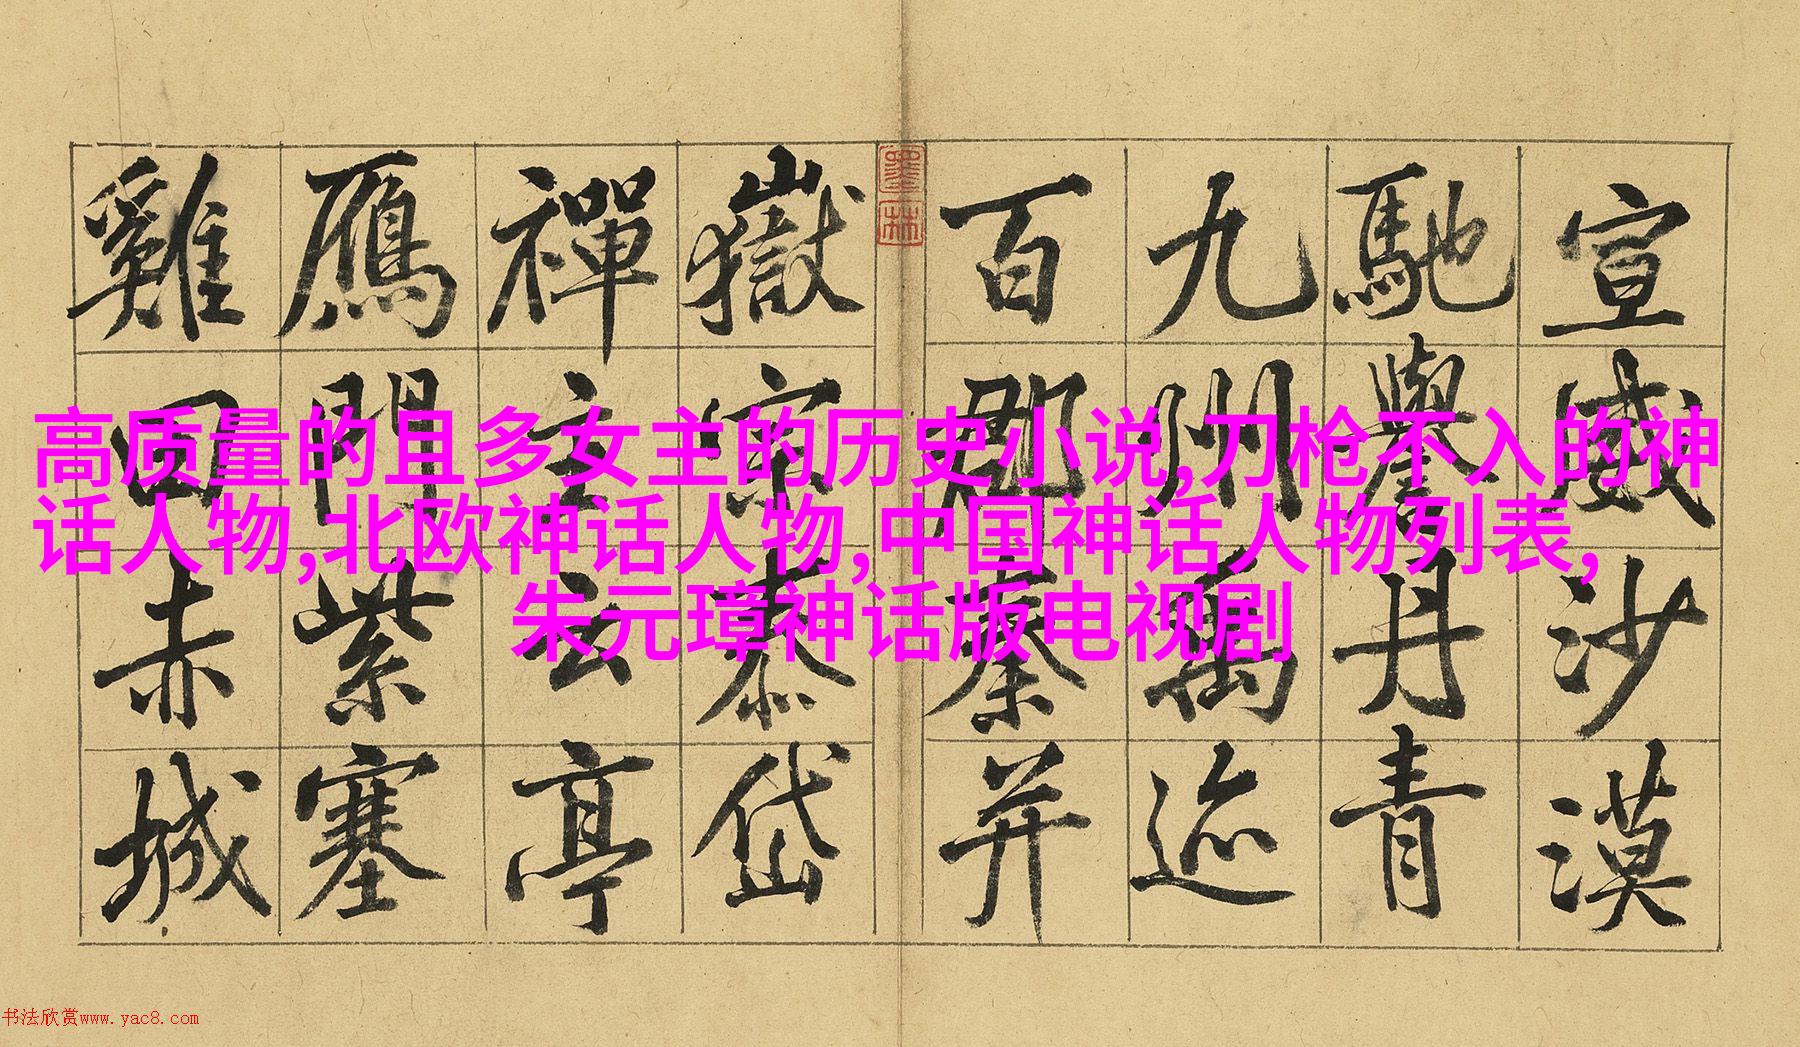 宣威沙漠
馳譽丹青
九州禹迹
百郡秦并
墨林
嶽宗泰岱
禪主云亭
鴈門紫塞
雞田赤城
高质量的且多女主的历史小说,刀枪不入的神
话人物,北欧神话人物,中国神话人物列表,
朱元璋神话版电视剧
书法欣赏www.yac8.com